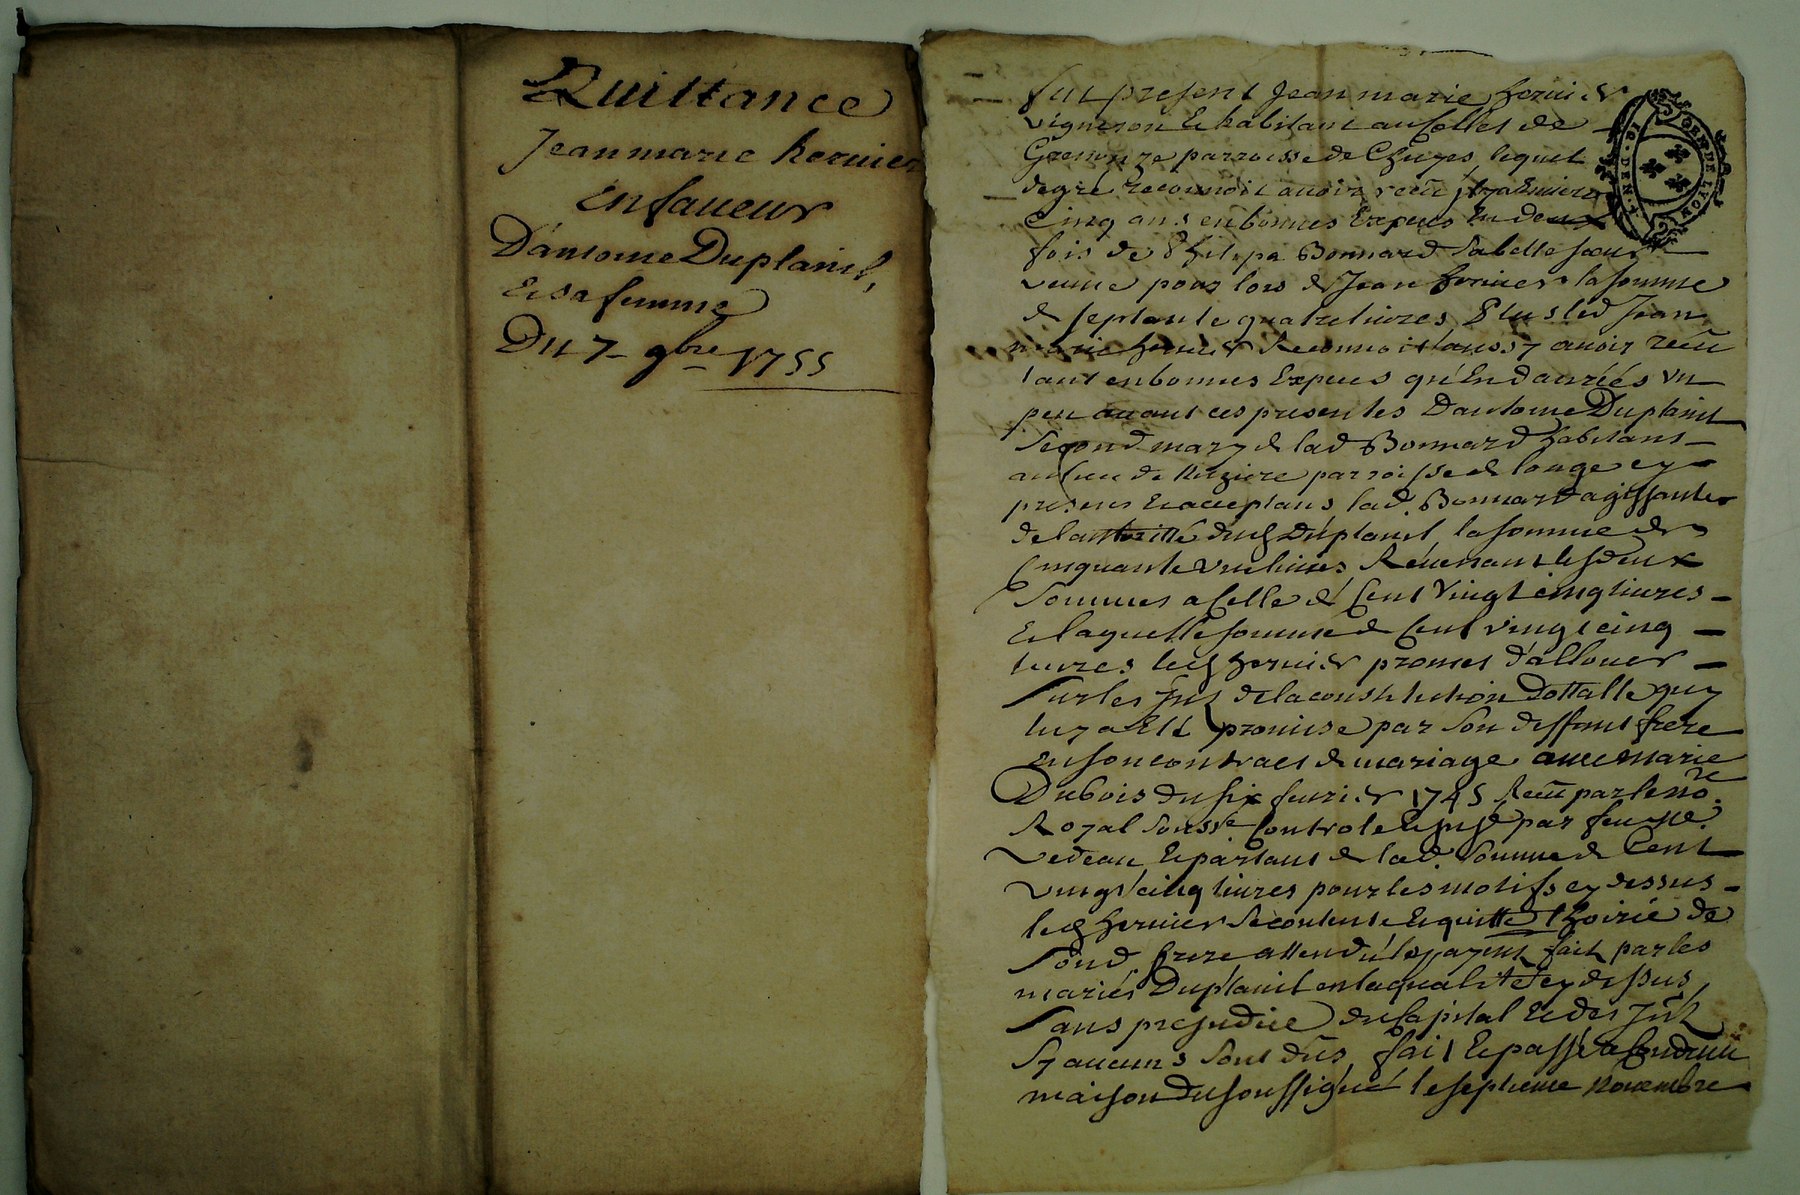 Quittance
Jeanmarie hernier
en faueur
D'antoine Duplanil,
et sa femme
Du 7 - 9bre 1755
fut present Jean marie hernier
vigneron et habitant au Collet de
parroisse de Chuyes lequel
de gré reconnoit auoir receu il y a Enuiron
Cinq ans en bonnes Expeces En deux
fois de Philipa Bonnard Sa belle soeur
veuue pour lors de Jean hernier la somme
de septante quatre liures, Plus led Jean
marie hernier Reconnoit aussy auoir receu
tant en bonnes Expeces qu'En danréés un
peu auant ces presentes D'antoine Duplanil
Second mary de lad Bonnard habitans
au lieu de parroisse de longe cy
presens et acceptans lad. Bonnard agissante
de l'authoritté dud Duplanil la somme de
Cinquante une liures Reuenant lesd deux
Sommes a Celle de Cent Vingt cinq liures
Et laquelle somme de Cent vingt cinq
liures led hernier promet d'allouer
Sur les Jnts de la constitution dottalle quy
luy a Eté promise par son deffunt frere
en son contract de mariage auec marie
Dubois du six feurier 1745 Receu par le nore
Royal Soussé. Controlé par feu me.
Vedeau Et partant de lad. Somme de Cent
vingt cinq liures pour les motifs cy dessus
led hernier se contente Et quitte l'hoirie de
Sond frere attendu le payemt fait par les
mariés Duplanil en la qualité cy dessus,
Sans prejudice du Capital Et des Jnts
Sy aucuns Sont dûs fait Et passé a Condrieu
maison du soussigné le septieme Nouembre
GEN. DE LYON